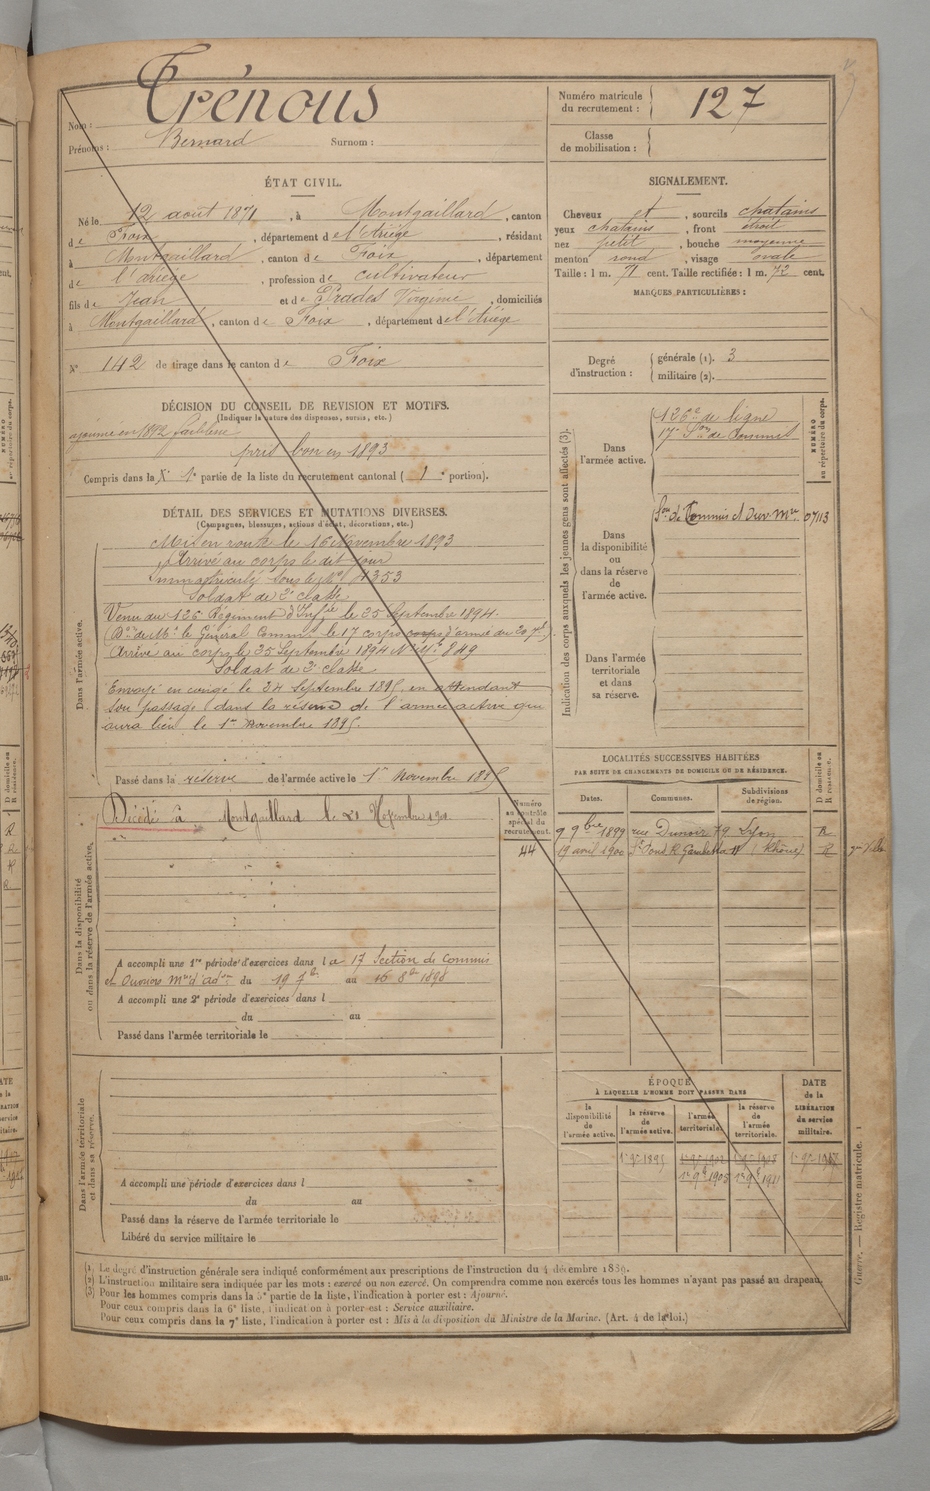 Nom : Trénous
Prénoms : Bernard Surnom :
Numéro matricule du recrutement : 127
Classe de mobilisation :
ÉTAT CIVIL.
Né le 12 août 1871, à Montgaillard, canton
de Foix, département de l'Ariège, résidant
à Montgaillard, canton de Foix, département
de l'Ariège, profession de cultivateur
fils de Jean et de Prades Virginie, domiciliés
à Montgaillard, canton de Foix, département de l'Ariège
N° 142 de tirage dans le canton de Foix
SIGNALEMENT.
Cheveux et, sourcils chatains
yeux chatains, front étroit
nez petit, bouche moyenne
menton rond, visage ovale
Taille : 1 m. 71 cent. Taille rectifiée : 1 m. 72 cent.
MARQUES PARTICULIÈRES :
Degré d'instruction : générale (1). 3
militaire (2).
DÉCISION DU CONSEIL DE REVISION ET MOTIFS.
(Indiquer la nature des dispenses, sursis, etc.)
ajourné en 1892 faiblesse
pris bon en 1893
Compris dans la 1e partie de la liste du recrutement cantonal ( 1e portion).
DÉTAIL DES SERVICES ET MUTATIONS DIVERSES.
(Campagnes, blessures, actions d'éclat, décorations, etc.)
Dans l'armée active.
Mis en route le 16 Novembre 1893
Arrivé au corps le dit jour
Immatriculé sous le No 4353
Soldat de 2e classe
Venu du 126 Régiment d'Infie le 25 Septembre 1894.
(Don de Mr le Général Commt le 17 corps corps d'armée du 20 7bre).
Arrivé au corps le 25 Septembre 1894 No Mle 849
Soldat de 2e classe
Envoyé en congé le 24 Septembre 1895, en attendant
son passage dans la réserve de l'armée active qui
aura lieu le 1er Novembre 1895.
Passé dans la réserve de l'armée active le 1er Novembre 1895
Indication des corps auxquels les jeunes gens sont affectés (3).
NUMÉRO au répertoire du corps.
Dans l'armée active.
126e de ligne
17e Son de Commis
Dans la disponibilité ou dans la réserve de l'armée active.
Son de Commis et Ouv Mre 07113
Dans l'armée territoriale et dans sa réserve.
Dans la disponibilité ou dans la réserve de l'armée active.
Décédé à Montgaillard le 21
Numéro au contrôle spécial du recrutement.
44
A accompli une 1re période d'exercices dans la 17 Section de Commis
et Ouvriers Mres d'Adon du 19 7bre au 16 8bre 1898
A accompli une 2e période d'exercices dans l
du au
Passé dans l'armée territoriale le
LOCALITÉS SUCCESSIVES HABITÉES
PAR SUITE DE CHANGEMENTS DE DOMICILE OU DE RÉSIDENCE.
Dates. Communes. Subdivisions de région. D domicile ou R résidence.
9 9bre 1899 rue Dunoir 79 Lyon R
19 avril 1900 St Fond R. Gambetta (Rhône) R
Dans l'armée territoriale et dans sa réserve.
A accompli une période d'exercices dans l
du au
Passé dans la réserve de l'armée territoriale le
Libéré du service militaire le
ÉPOQUE
À LAQUELLE L'HOMME DOIT PASSER DANS
la disponibilité de l'armée active. la réserve de l'armée active. l'armée territoriale. la réserve de l'armée territoriale.
DATE de la LIBÉRATION du service militaire.
1er 9bre 1895
1er 9bre 1905
(1) Le degré d'instruction générale sera indiqué conformément aux prescriptions de l'instruction du 4 décembre 1889.
(2) L'instruction militaire sera indiquée par les mots : exercé ou non exercé. On comprendra comme non exercés tous les hommes n'ayant pas passé au drapeau.
(3) Pour les hommes compris dans la 5e partie de la liste, l'indication à porter est : Ajourné.
Pour ceux compris dans la 6e liste, l'indication à porter est : Service auxiliaire.
Pour ceux compris dans la 7e liste, l'indication à porter est : Mis à la disposition du Ministre de la Marine. (Art. 4 de la loi.)
Guerre. — Registre matricule. 1